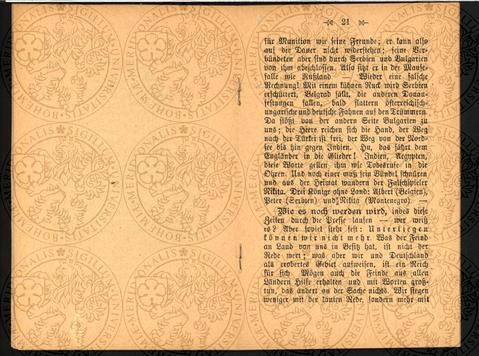 21
für Munition wir seine Freunde; er kann also
auf der Dauer nicht widerstehen; seine Ver-
bündeten aber sind durch Serbien und Bulgarien
von ihm abgeschlossen. Also sitzt er in der Mause-
falle wie Rußland — Wieder eine falsche
Rechnung! Mit einem kühnen Ruck wird Serbien
erschüttert, Belgrad fällt, die anderen Donau-
festungen fallen, bald flattern österreichisch-
ungarische und deutsche Fahnen auf den Trümmern.
Da stößt von der andern Seite Bulgarien zu
uns; die Heere reichen sich die Hand, der Weg
nach der Türkei ist frei, der Weg von der Nord-
see bis hin gegen Indien. Hu, das fährt dem
Engländer in die Glieder! Indien, Aegypten,
diese Worte gellen ihm wie Todesrufe in die
Ohren. Und noch einer muß sein Bündel schnüren
und aus der Heimat wandern der Falschspieler
Nikita. Drei Könige ohne Land: Albert (Belgien),
Peter (Serbien) und Nikita (Montenegro) —
Wie es noch werden wird, indes diese
Zeilen durch die Presse laufen — wer weiß
es? Aber soviel steht fest: Unterliegen
können wir nicht mehr. Was der Feind
an Land von uns in Besitz hat, ist nicht der
Rede wert; was aber wir und Deutschland
als erobertes Gebiet aufweisen, ist ein Reich
für sich. Mögen auch die Feinde aus allen
Ländern Hilfe erhalten und mit Worten groß-
tun, das ändert an der Sache nichts. Wir siegen
weniger mit der lauten Rede, sondern mehr mit